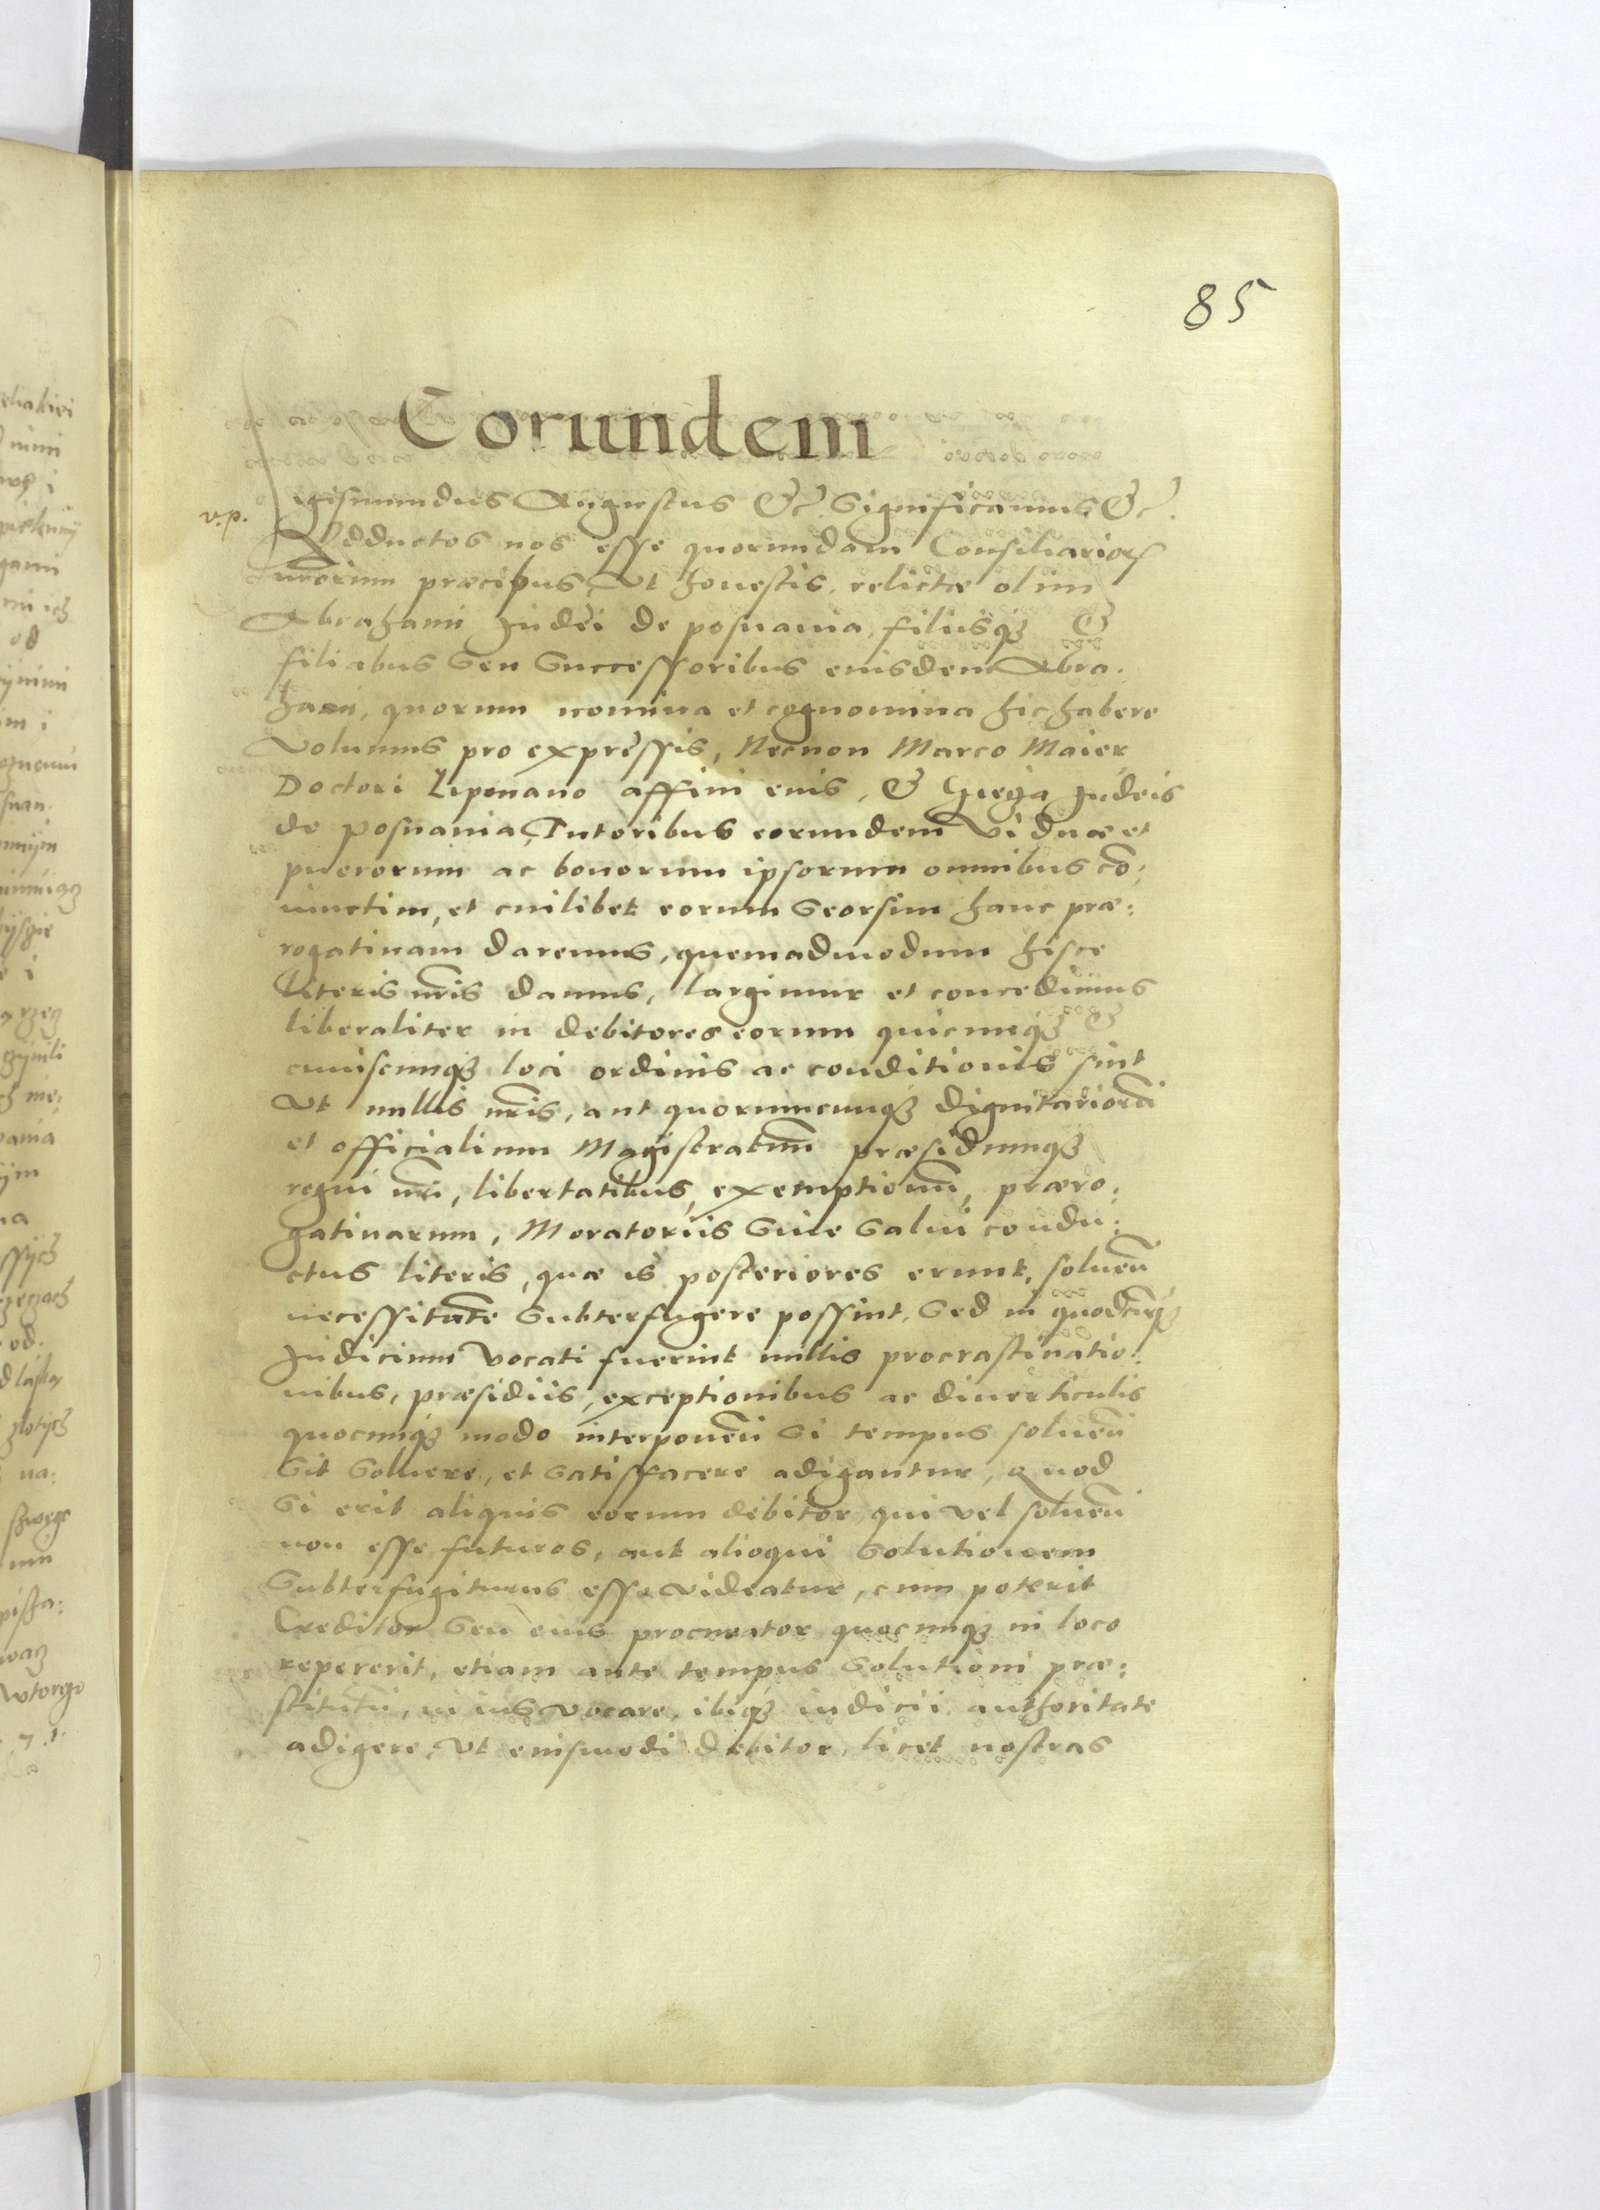 85
Eorundem
v.p.
Sigismundus Augustus &c. Significamus &c.
Adductos nos esse quorundam Consiliarior
nrorum precibus, Ut honestis, relictæ olim
Abrahami Judei de posnania, filiisq3 &
filiabus seu Successoribus eiusdem Abra:
hami, quorum nomina et cognomina hic habere
Volumus pro expressis, Necnon Marco Maier
Doctori affini eius, & Judeis
de Posnania, Tutoribus eorundem Viduæ et
puerorum ac bonorum ipsorum omnibus cō:
iunctim, et cuilibet eorum Seorsim hanc præ:
rogatiuam daremus, quemadmodum hisce
literis nr̄is damus, largimur et concedimus
liberaliter in debitores eorum quicunq3 &
cuiuscunq3 loci ordinis ac conditionis sint
Ut nullis nr̄is, aut quorumcunq3 dignitariorū
et officialium Magistratuū præsidumq3
regni nr̄i, libertatibus, exemptionū, præro:
gatiuarum, Moratoriis Siue Salui condu:
ctus literis, quæ is posteriores erunt, soluen̄
necessitatē Subterfugere possint. Sed in quodcūq3
Judicium Vocati fuerint nullis procrastinatio:
nibus, præsidiis, exceptionibus ac diuerticulis
quocunq3 modo interponen̄ Si tempus soluen̄
Sit Soluere, et Satisfacere adigantur, quod
Si erit aliquis eorum debitor, qui vel soluen̄
non esse futuros, aut alioqui Solutionem
Subterfugiturus esse videatur, eum poterit
Creditor Seu eius procurator quocunq3 in loco
repererit, etiam ante tempus Solutioni præ:
stitutū, in ius vocare, ibiq3 iudicii authoritate
adigere, Ut eiusmodi debitor, licet nostras